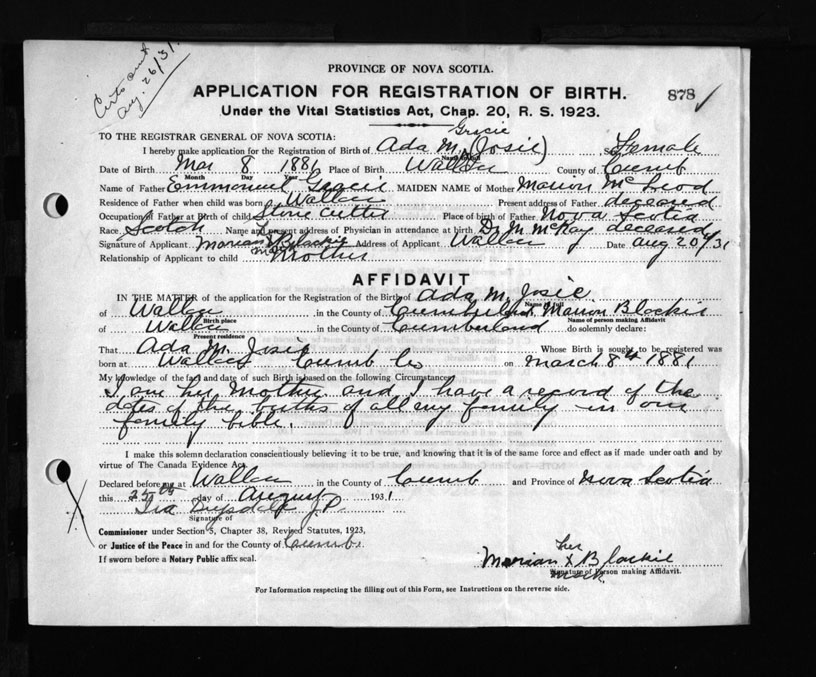 Certs sent
Aug. 26/31
PROVINCE OF NOVA SCOTIA.
APPLICATION FOR REGISTRATION OF BIRTH. 878
Under the Vital Statistics Act, Chap. 20, R. S. 1923.
TO THE REGISTRAR GENERAL OF NOVA SCOTIA:
Gracie
I hereby make application for the Registration of Birth of Ada M. (Josie) Female
Date of Birth Mar 8 1881 Place of Birth Wallace County of Cumb
Month Day Year
Name of Father Emmanuel MAIDEN NAME of Mother Marion McLeod
Residence of Father when child was born Wallace Present address of Father deceased
Occupation of Father at Birth of child Stone Cutter Place of birth of Father Nova Scotia
Race Scotch Name and present address of Physician in attendance at birth Dr. M. McKay deceased
Signature of Applicant Marian X Blackie Address of Applicant Wallace Date Aug 20/31
Relationship of Applicant to child Mother
AFFIDAVIT
IN THE MATTER of the application for the Registration of the Birth of Ada M. Josie
Name in full
of Wallace in the County of Cumberland Marion Blackie
Birth place Name of person making Affidavit
of Wallace in the County of Cumberland do solemnly declare:
Present residence
That Ada M. Josie Whose Birth is sought to be registered was
born at Wallace Cumb Co on March 8th 1881
My knowledge of the fact and date of such Birth is based on the following Circumstances
I am her Mother and I have a record of the
dates of the births of all my family in our
family bible.
I make this solemn declaration conscientiously believing it to be true, and knowing that it is of the same force and effect as if made under oath and by
virtue of The Canada Evidence Act.
Declared before me at Wallace in the County of Cumb and Province of Nova Scotia
this 25th day of August 1931
Ira J.P.
Signature of
Commissioner under Section 5, Chapter 38, Revised Statutes, 1923,
or Justice of the Peace in and for the County of Cumb.
If sworn before a Notary Public affix seal.
her
Marian X Blackie
Signature of Person making Affidavit.
mark
For Information respecting the filling out of this Form, see Instructions on the reverse side.